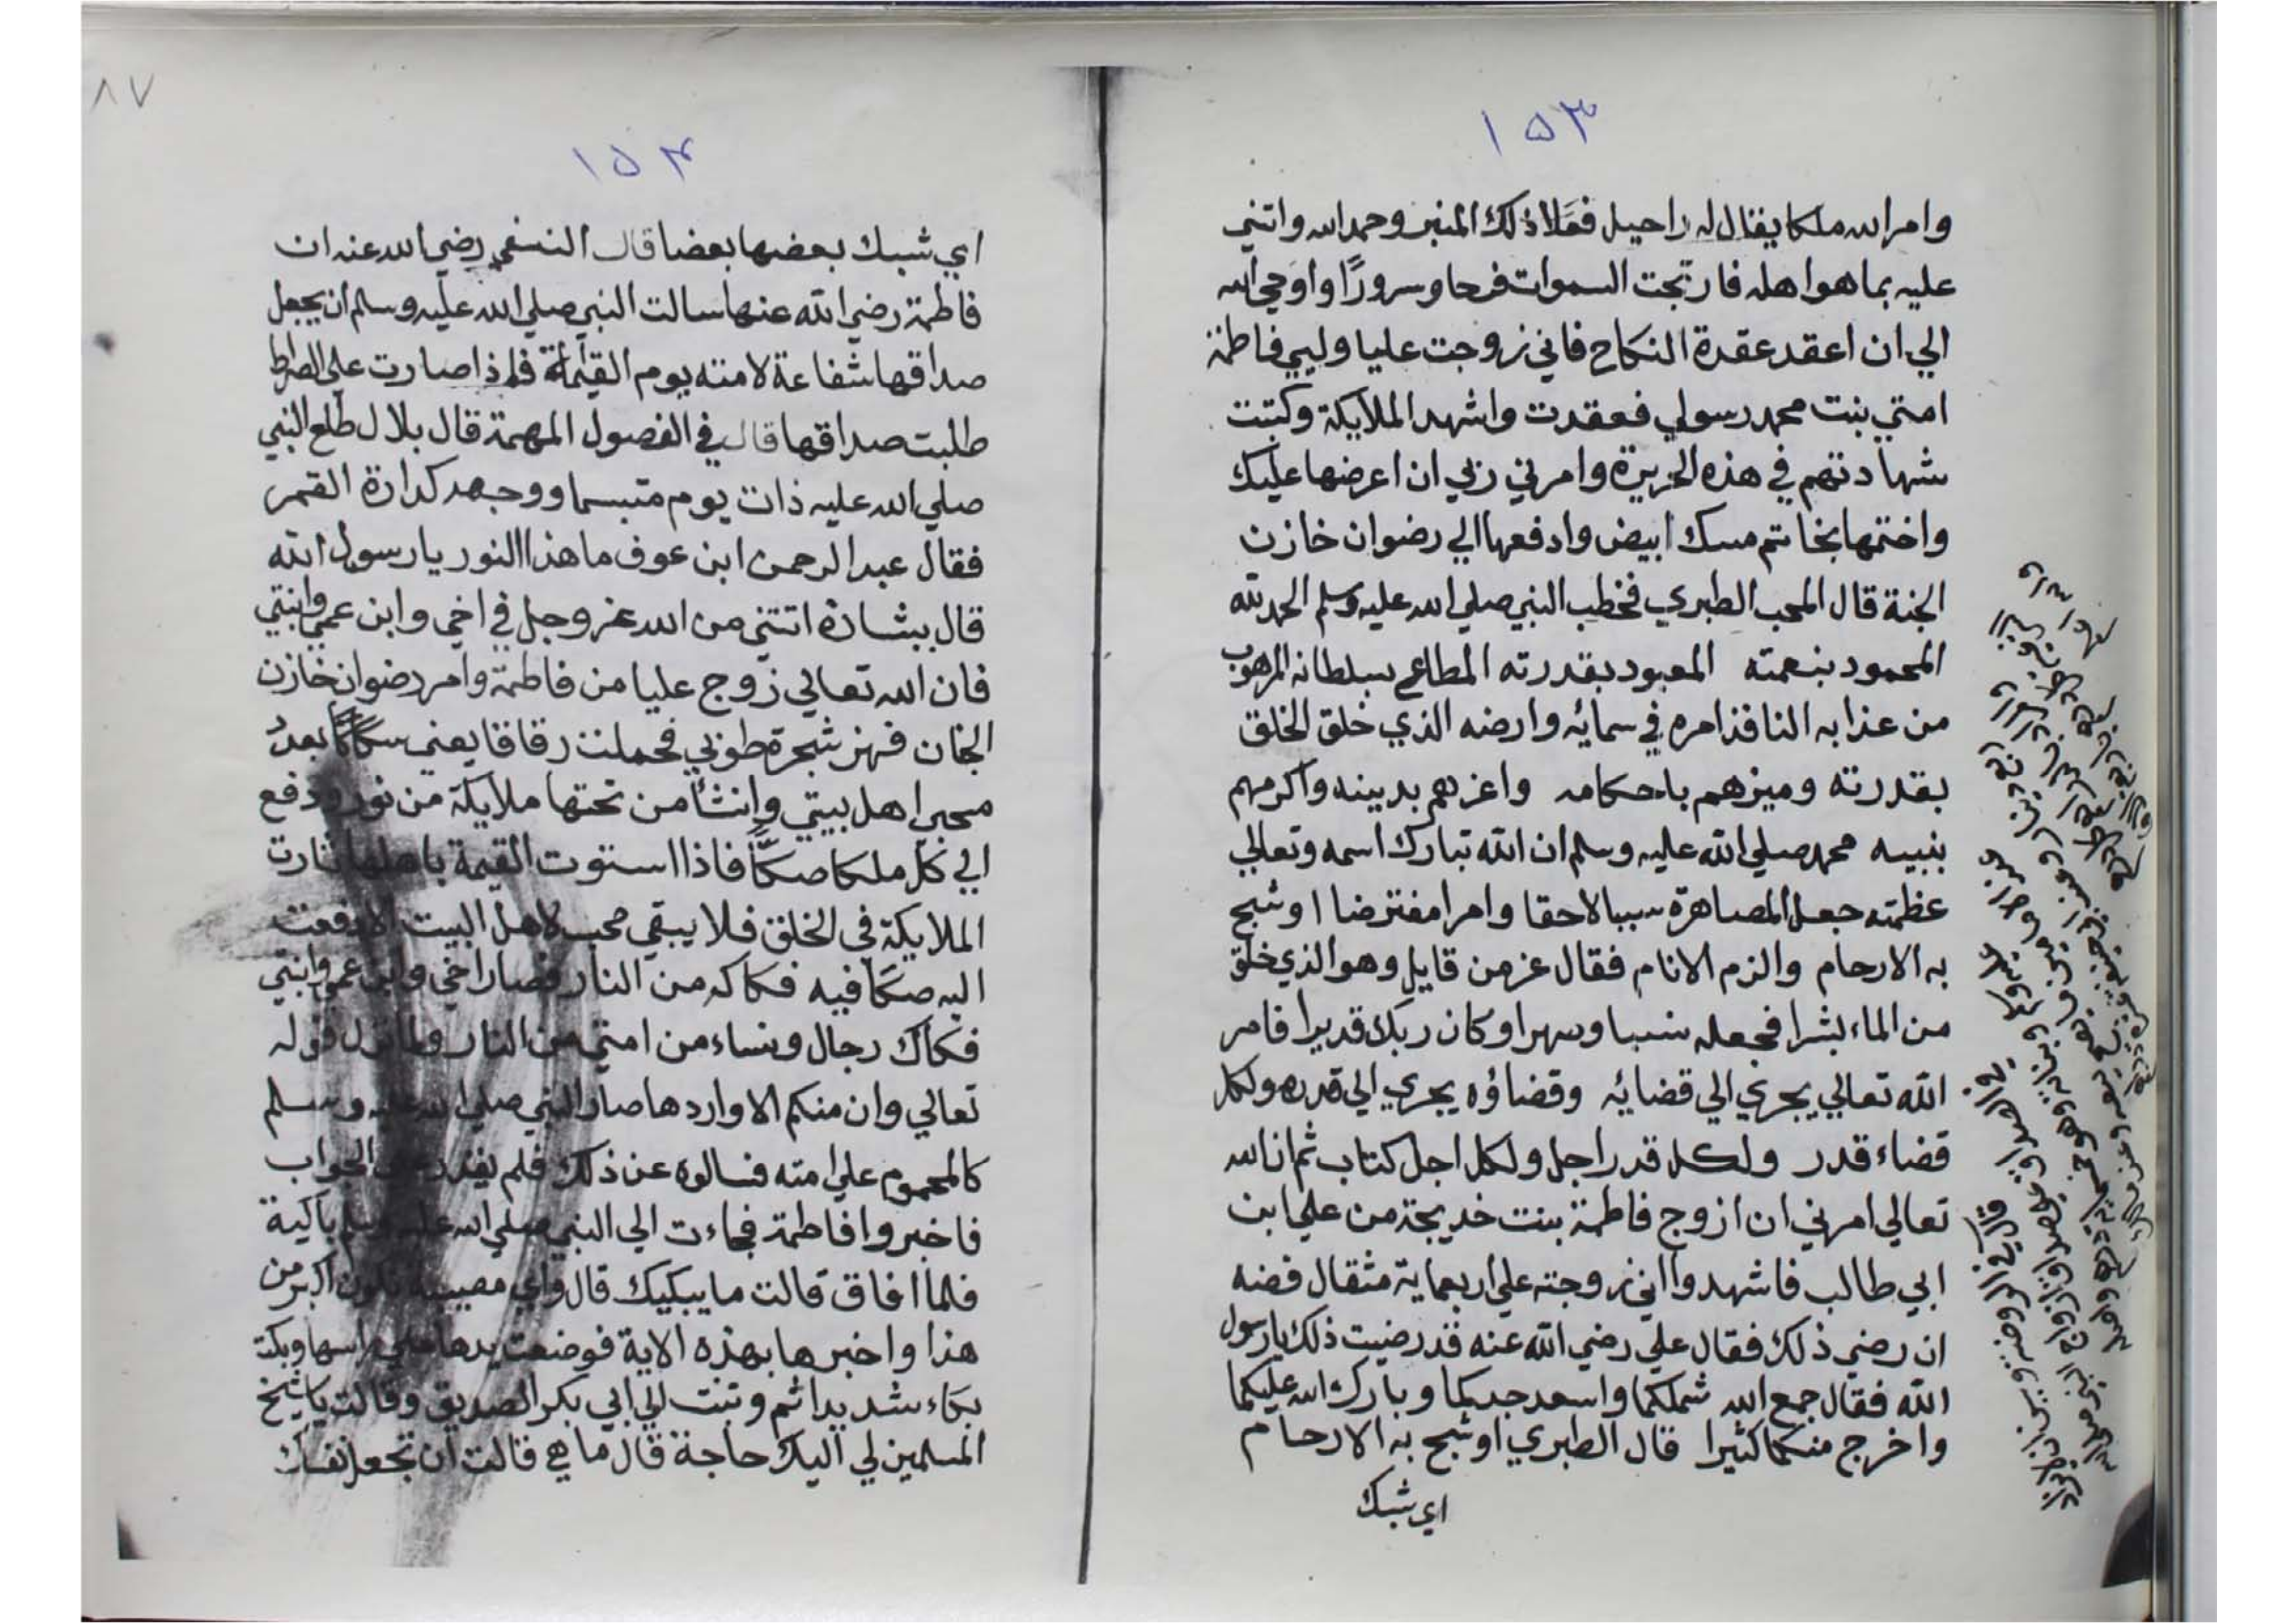 ١٥٣
وامر الله ملكا يقال له راحيل فعَلا ذلك المنبر وحمد الله واثني
عليه بما هو اهله فارتجت السموات فرحا وسرورًا واوحي الله
الي ان اعقد عقدة النكاح فاني زوجت عليا وليي فاطمة
امتي بنت محمد رسولي فعقدت واشهد الملايكة وكتبت
شهادتهم في هذه الحريرة وامرني ربي ان اعرضها عليك
واختمها بخاتم مسك ابيض وادفعها الي رضوان خازن
الجنة قال المحب الطبري فخطب النبي صلي الله عليه وسلم الحمد لله
المحمود بنعمته المعبود بقدرته المطاع بسلطانه المرهوب
من عذابه النافذ امره في سمائه وارضه الذي خلق الخلق
بقدرته وميزهم باحكامه واعزهم بدينه واكرمهم
بنبيه محمد صلي الله عليه وسلم ان الله تبارك اسمه وتعالي
عظمته جعل المصاهرة سببا لاحقا وامرا مفترضا اوشج
به الارحام والزم الانام فقال عز من قايل وهو الذي خلق
من الماء بشرا فجعله نسبا وصهرا وكان ربك قديرا فامر
الله تعالي يجري الي قضائه وقضاؤه يجري الي قدره ولكل
قضاء قدر ولكل قدر اجل ولكل اجل كتاب ثم ان الله
تعالي امرني ان ازوج فاطمة بنت خديجة من علي ابن
ابي طالب فاشهدوا اني زوجته علي اربعماية مثقال فضه
ان رضي ذلك فقال علي رضي الله عنه قد رضيت ذلك يا رسول
الله فقال جمع الله شملكما واسعد جدكما وبارك الله عليكما
واخرج منكما كثيرا قال الطبري اوشج به الارحام
اي شبك
٨٧
١٥٤
اي شبك بعضها بعضا قال النسفي رضي الله عنه ان
فاطمة رضي الله عنها سالت النبي صلي الله عليه وسلم ان يجعل
صداقها شفاعة لامته يوم القيمة فاذا صارت علي الصراط
طلبت صداقها قال في الفصول المهمة قال بلال طلع النبي
صلي الله عليه ذات يوم متبسما ووجهه كدارة القمر
فقال عبد الرحمن ابن عوف ما هذا النور يا رسول الله
قال ببشارة اتتني من الله عز وجل في اخي وابن عمي وابنتي
فان الله تعالي زوج عليا من فاطمة وامر رضوان خازن
الجنان فهز شجرة طوبي فحملت رقاقا يعني سكاكًا بعدد
محبي اهل بيتي وانشأ من تحتها ملايكة من نور ودفع
الي كل ملك صكًّا فاذا استوت القيمة باهلها نارت
الملايكة في الخلق فلا يبقي محب لاهل البيت الا دفعت
اليه صكا فيه فكاكه من النار فصار اخي وابن عمي وابنتي
فكاك رجال ونساء من امتي من النار ولما نزل قوله
تعالي وان منكم الا واردها صار النبي صلي الله عليه وسلم
كالمحموم علي امته فسالوه عن ذلك فلم يقدر علي الجواب
فاخبروا فاطمة فجاءت الي النبي صلي الله عليه وسلم باكية
فلما افاق قالت ما يبكيك قال واي مصيبة تكون اكبر من
هذا واخبرها بهذه الاية فوضعت يدها علي راسها وبكت
بكاء شديدا ثم وثبت الي ابي بكر الصديق وقالت يا شيخ
المسلمين لي اليك حاجة قال ما هي قالت ان تجعل نفسك